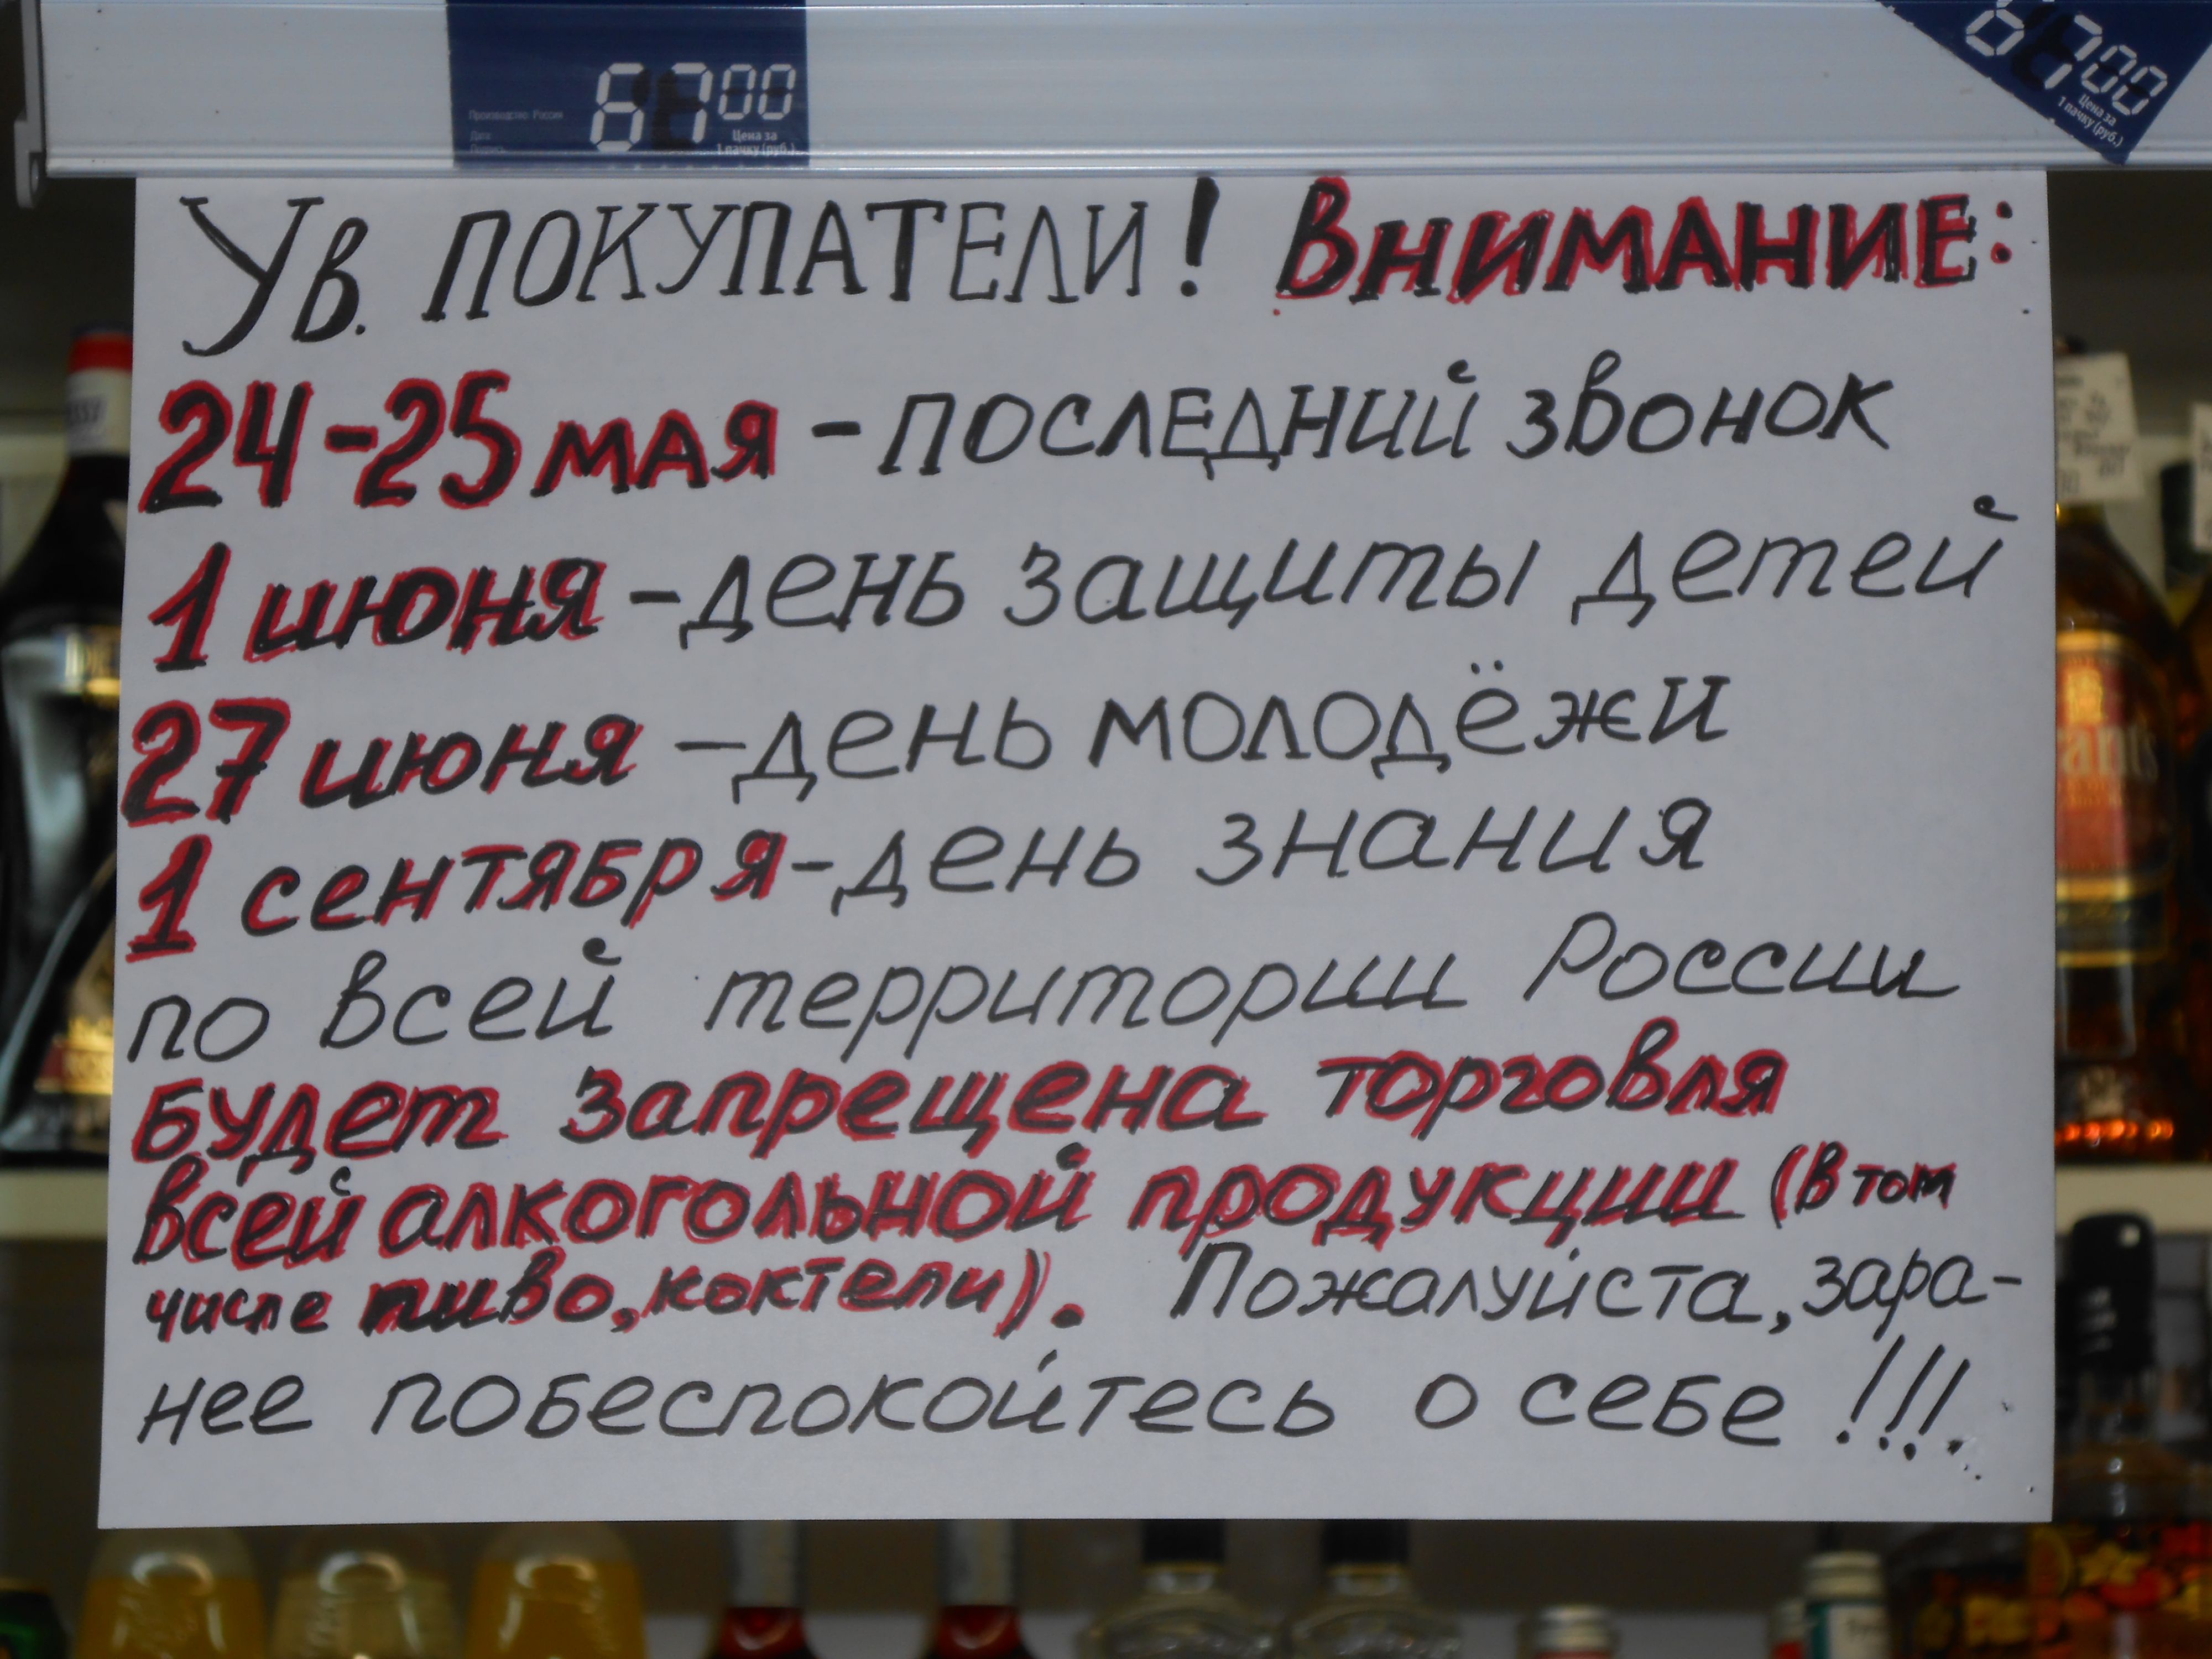 67 00
Производство Россия
Дата
Цена за
1 пачку (руб.)
67 00
Цена за
1 пачку (руб.)
Ув. ПОКУПАТЕЛИ! ВНИМАНИЕ:
24-25 мая - последний звонок
1 июня - день защиты детей
27 июня - день молодёжи
1 сентября - день знания
по всей территории России
будет запрещена торговля
всей алкогольной продукции (в том
числе пиво, коктели). Пожалуйста, зара-
нее побеспокойтесь о себе!!!